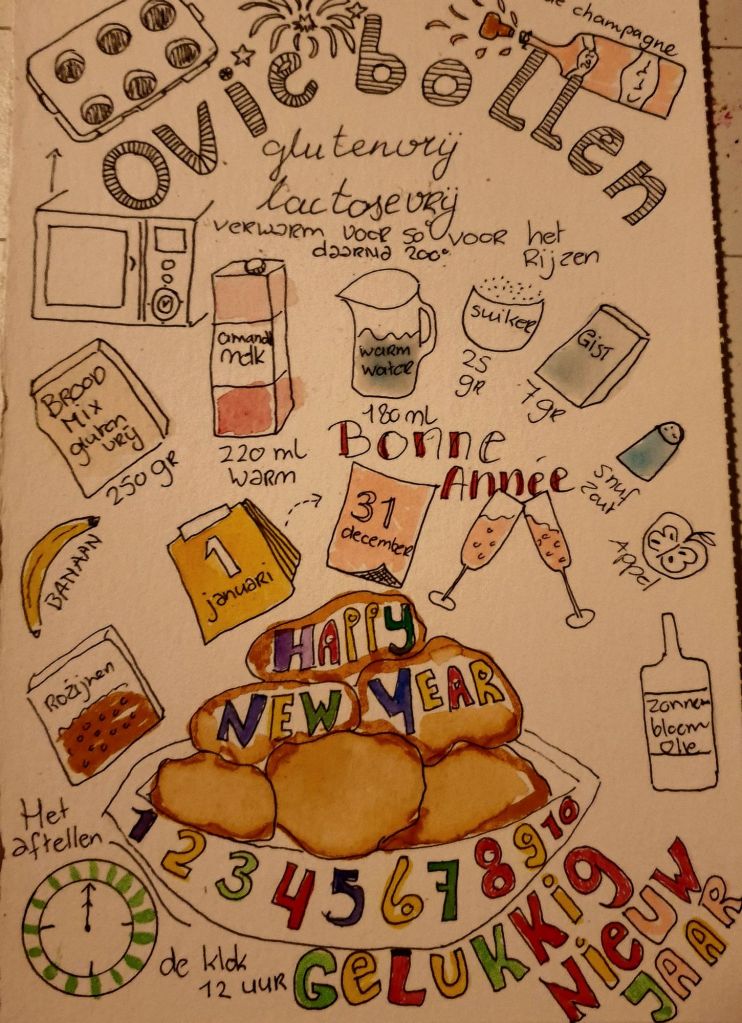 de champagne
oviebollen
glutenvrij
lactosevrij
verwarm voor 50° voor het
Rijzen
daarna 200°
amandel
melk
220 ml
warm
warm
water
180 ml
suiker
25
gr
Gist
7 gr
BROOD
MIX
gluten
vrij
250 gr
Bonne
Année
snuf
zout
Appel
BANAAN
1
januari
31
december
HAPPY
NEW YEAR
Rozijnen
zonnen
bloem
olie
Het
aftellen
1 2 3 4 5 6 7 8 9 10
de klok
12 uur
GELUKKIG
NIEUW
JAAR